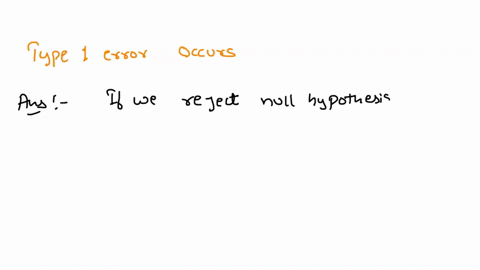 Type 1 error occurs
Ans:- If we reject null hypothesis